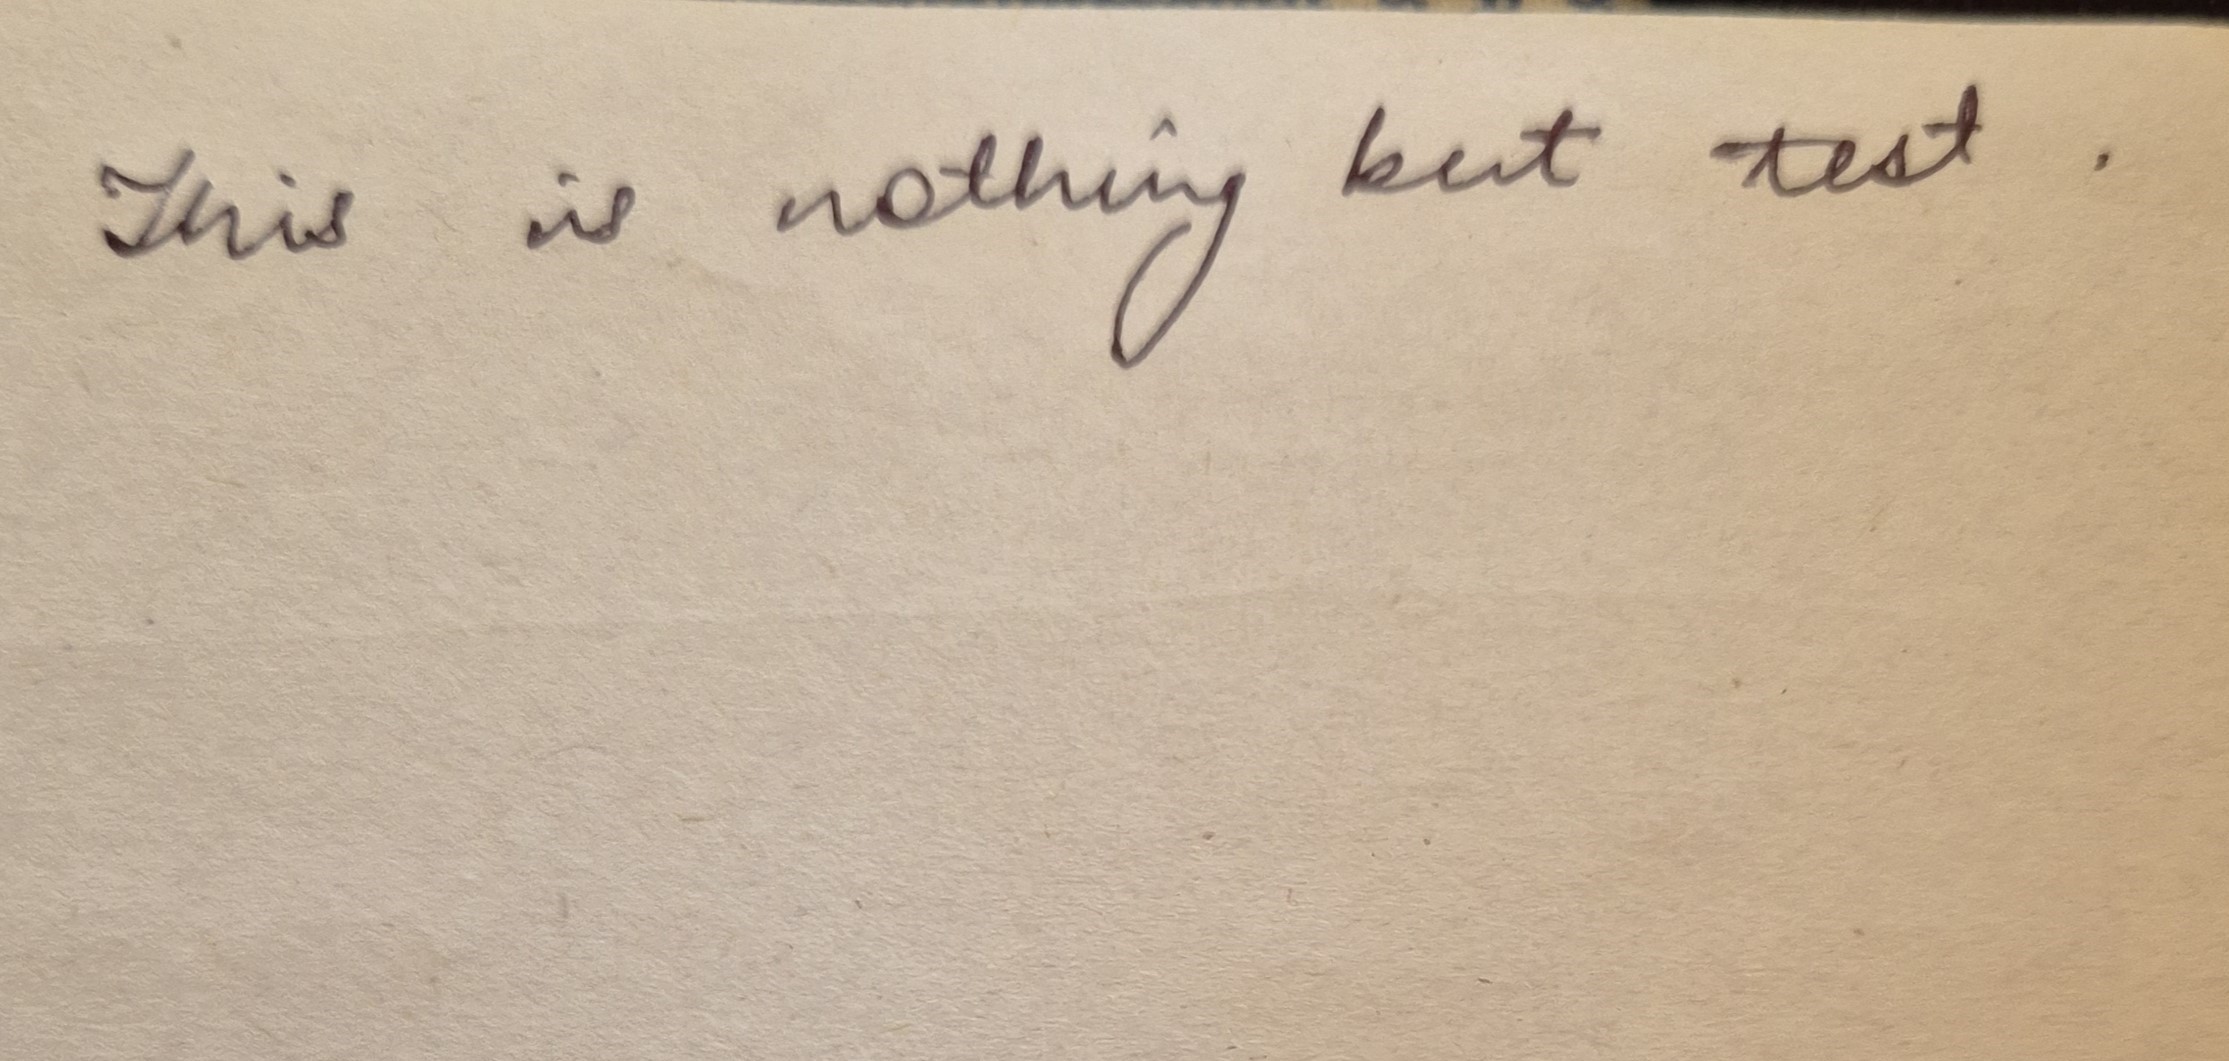 This is nothing but test.